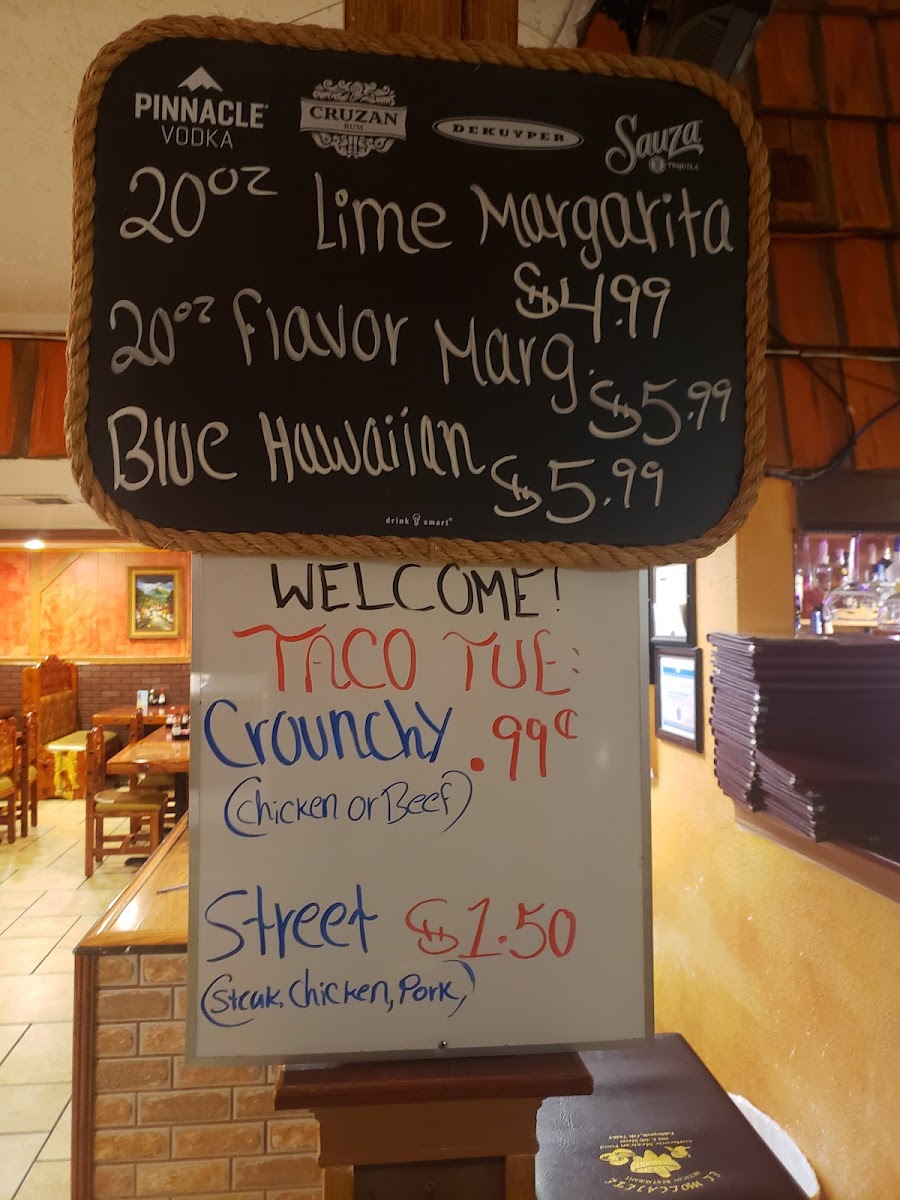 PINNACLE
VODKA
CRUZAN
RUM
DEKUYPER
Sauza
TEQUILA
20oz Lime Margarita
$4.99
20oz Flavor Marg.
$5.99
Blue Hawaiian $5.99
drink smart
WELCOME!
TACO TUE:
Crounchy .99¢
(Chicken or Beef)
Street $1.50
(Steak, Chicken, Pork,)
EL MOLCAJETE
MEXICAN RESTAURANT
Authentic Mexican Food